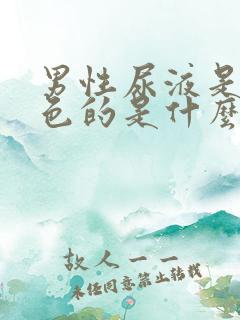 男性尿液是
色的是什麼
故人一一
未经同意禁止转载